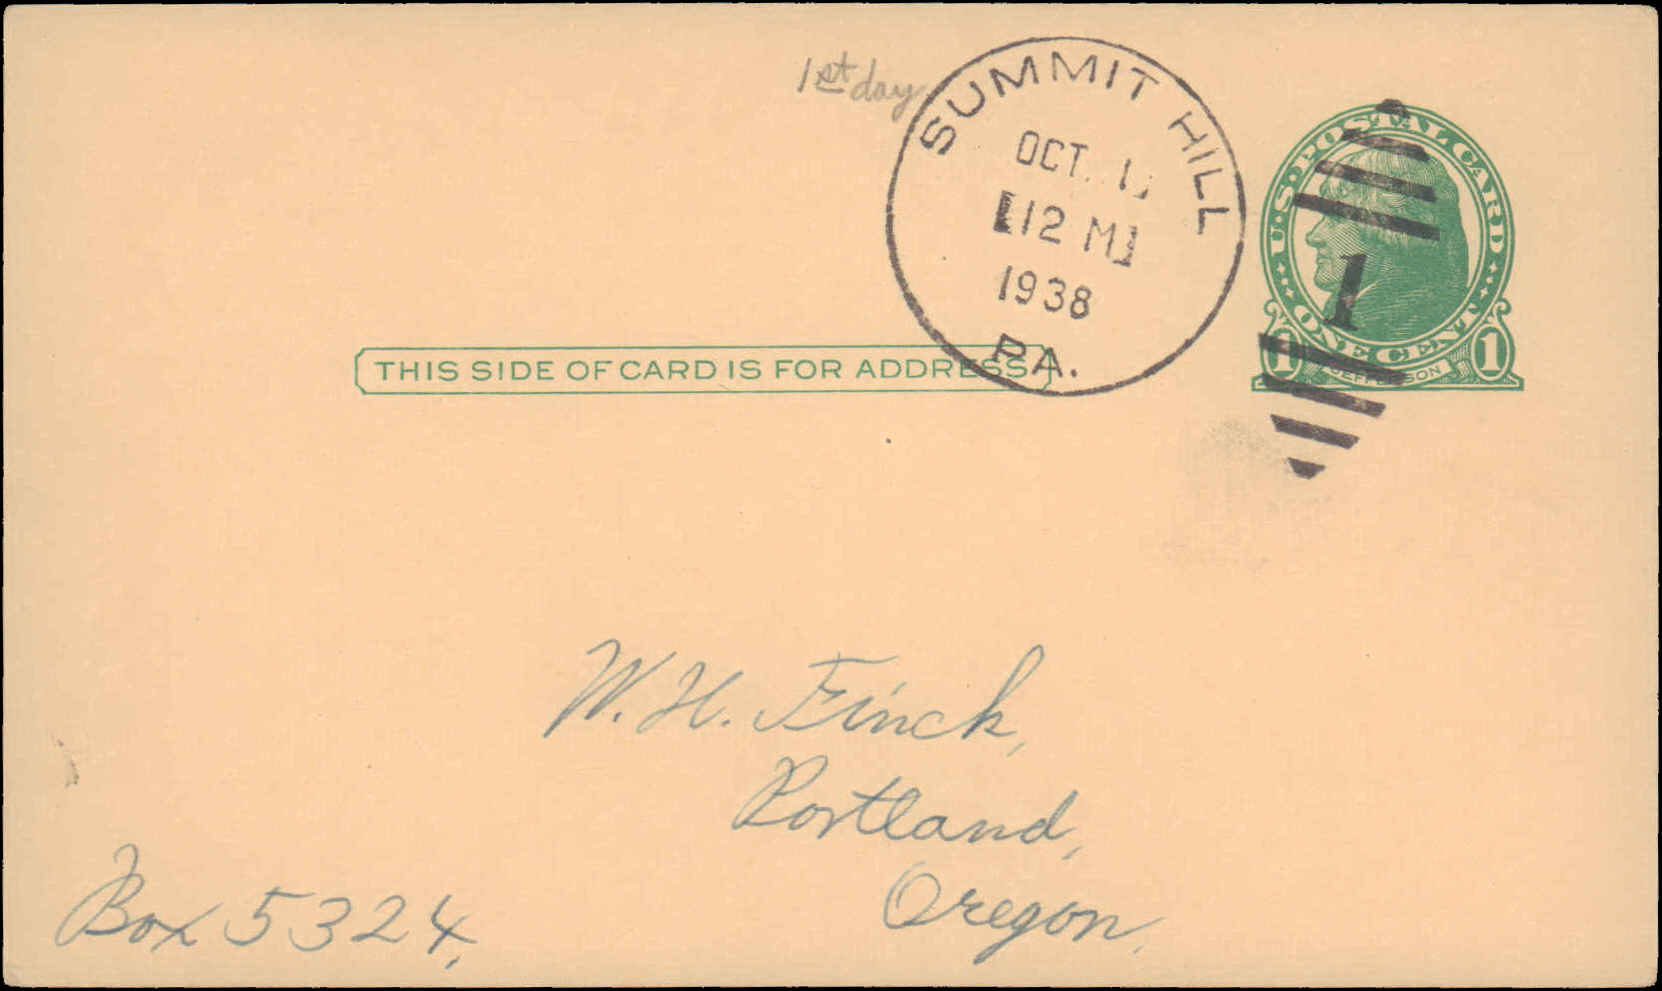 1st day
SUMMIT HILL
OCT. 1
12 M
1938
PA.
U.S. POSTAL CARD
ONE CENT
1 1
JEFFERSON
1
THIS SIDE OF CARD IS FOR ADDRESS
W. H. Finck,
Portland,
Oregon.
Box 5324,